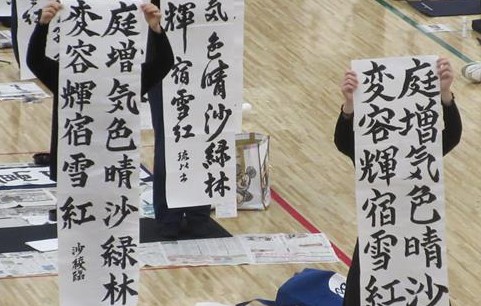 庭増気色晴沙緑林
変容輝宿雪紅
気色晴沙緑林
輝宿雪紅
庭増気色晴沙
変容輝宿雪紅